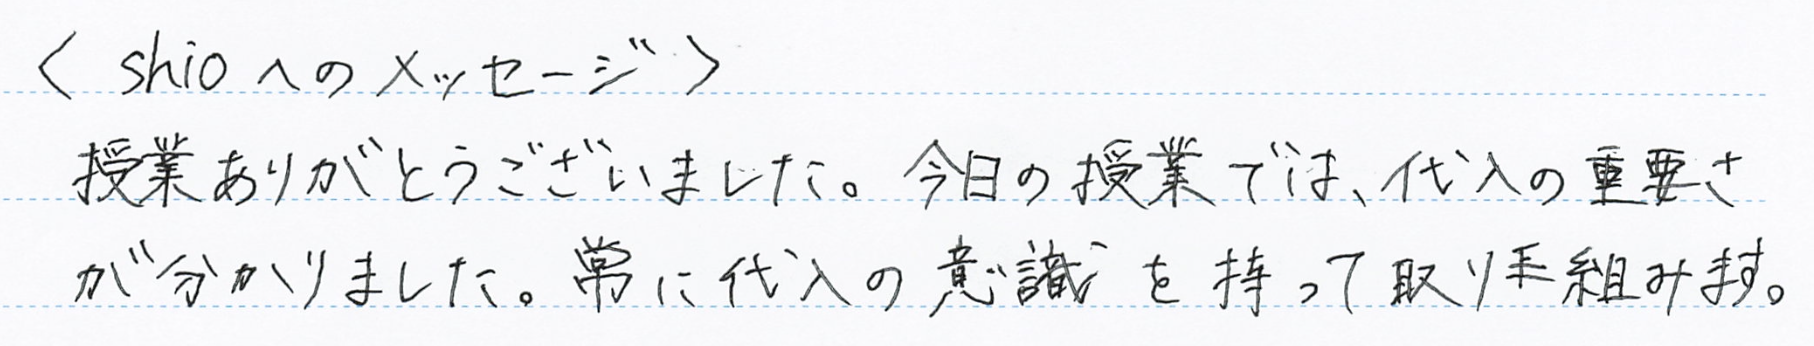 〈 shioへのメッセージ〉
授業ありがとうございました。今日の授業では、代入の重要さ
が分かりました。常に代入の意識を持って取り手組みます。